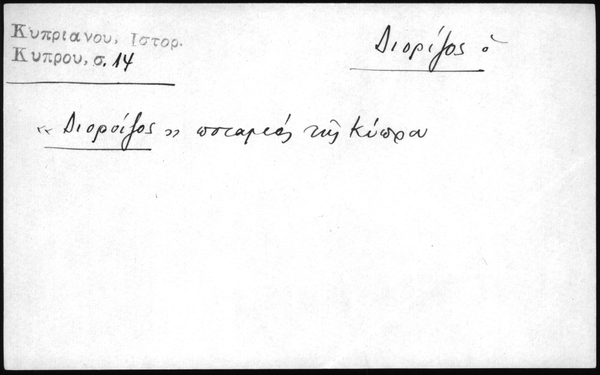 Κυπριανου, Ιστορ.
Κυπρου, σ. 14
Διορίζος ὁ
« Διοροίζος » ποταμὸς τῆς Κύπρου